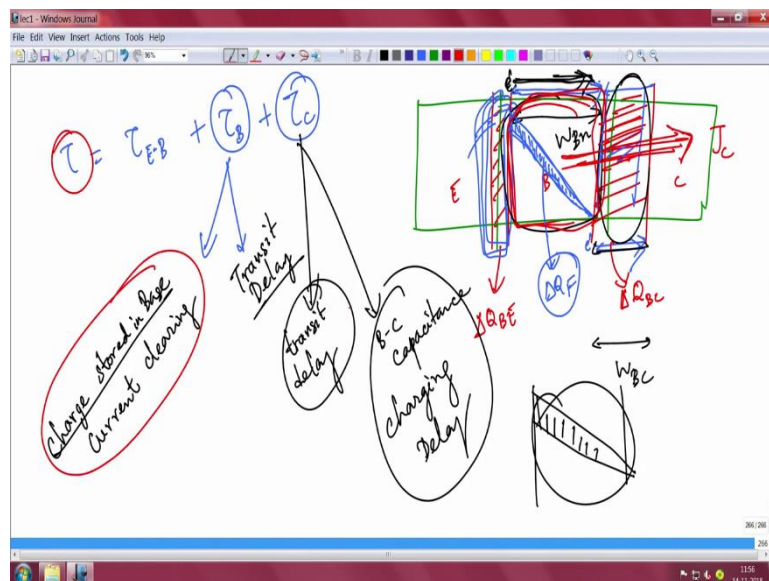 lec1 - Windows Journal
File Edit View Insert Actions Tools Help
96%
B I
τ = τ_{E-B} + τ_B + τ_C
Transit
Delay
Charge stored in Base
Current clearing
transit
delay
B-C
Capacitance
Charging
Delay
e⁻
W_{Bn}
E
B
C
J_C
e⁻
ΔQ_{BE}
ΔQ_F
ΔQ_{BC}
W_{BC}
266/266
266
1156
14-11-2018